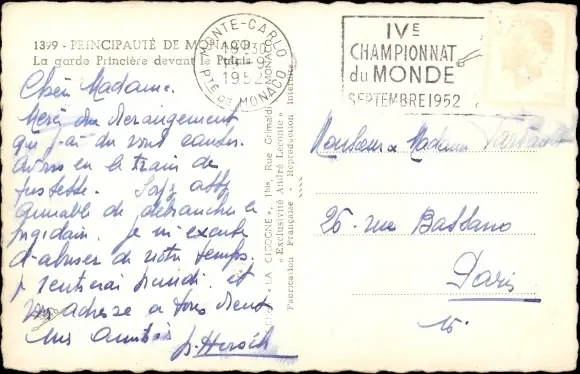 1399 - PRINCIPAUTÉ DE MONACO
La garde Princière devant le Palais
MONTE-CARLO
19 H 30
1952
PTÉ DE MONACO
MONACO
IVE
CHAMPIONNAT
du MONDE
SEPTEMBRE 1952
Chère Madame.
Merci du dérangement
que j'ai du vous causer.
Avons eu le train de
justesse. Soyez assez
aimable de débrancher le
frigidair. Je m'excuse
d'abuser de votre temps.
je rentrerai jeudi. et
vous adresse a tous deux
mes amitiés
p. Hersch
"LA CIGOGNE", 1bis, Rue Grimaldi
"Exclusivité André Leconte"
Fabrication Française - Reproduction Interdite
Monsieur et Madame
26. rue Bassano
Paris